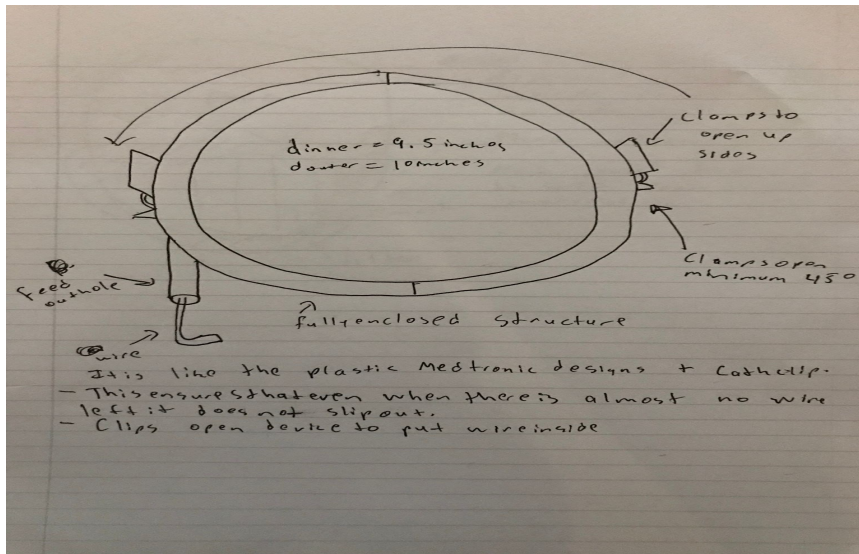 Clamps to
open up
sides
dinner = 9.5 inches
douter = 10 inches
Clamps open
minimum 45°
feed
outhole
fully enclosed structure
wire
It is like the plastic Medtronic designs + Cathclip.
- This ensures that even when there is almost no wire
left it does not slip out.
- Clips open device to put wire inside